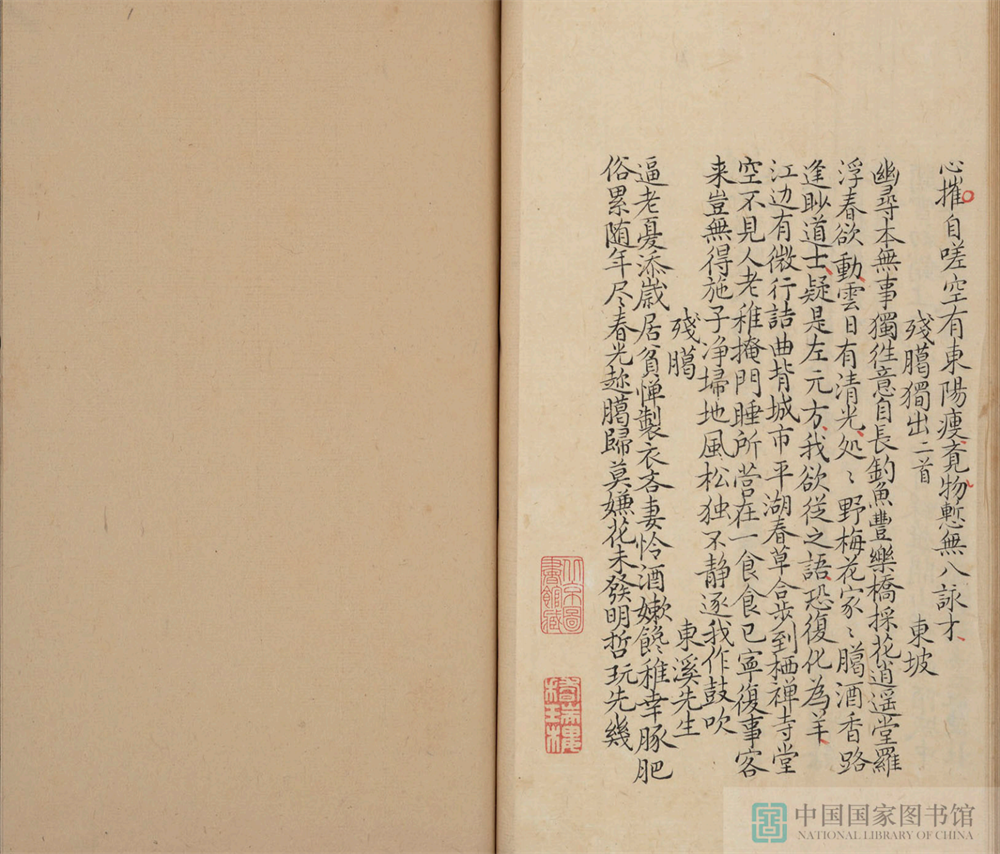 心摧自嗟空有東陽瘦覔物慙無八詠才
殘臈獨出二首 東坡
幽尋本無事獨徃意自長釣魚豐樂橋採花逍遥堂羅
浮春欲動雲日有清光処〻野梅花家〻臈酒香路
逢眇道士疑是左元方我欲從之語恐復化為羊
江边有微行詰曲背城市平湖春草合步到栖禅寺堂
空不見人老稚掩門睡所营在一食食已寧復事客
来豈無得施子净掃地風松独不静逐我作鼓吹
殘臈 東溪先生
逼老憂添歲居貧惮製衣吝妻怜酒嫰饞稚幸豚肥
俗累随年尽春光趂臈歸莫嫌花未發明哲玩先幾
中国国家图书馆
NATIONAL LIBRARY OF CHINA